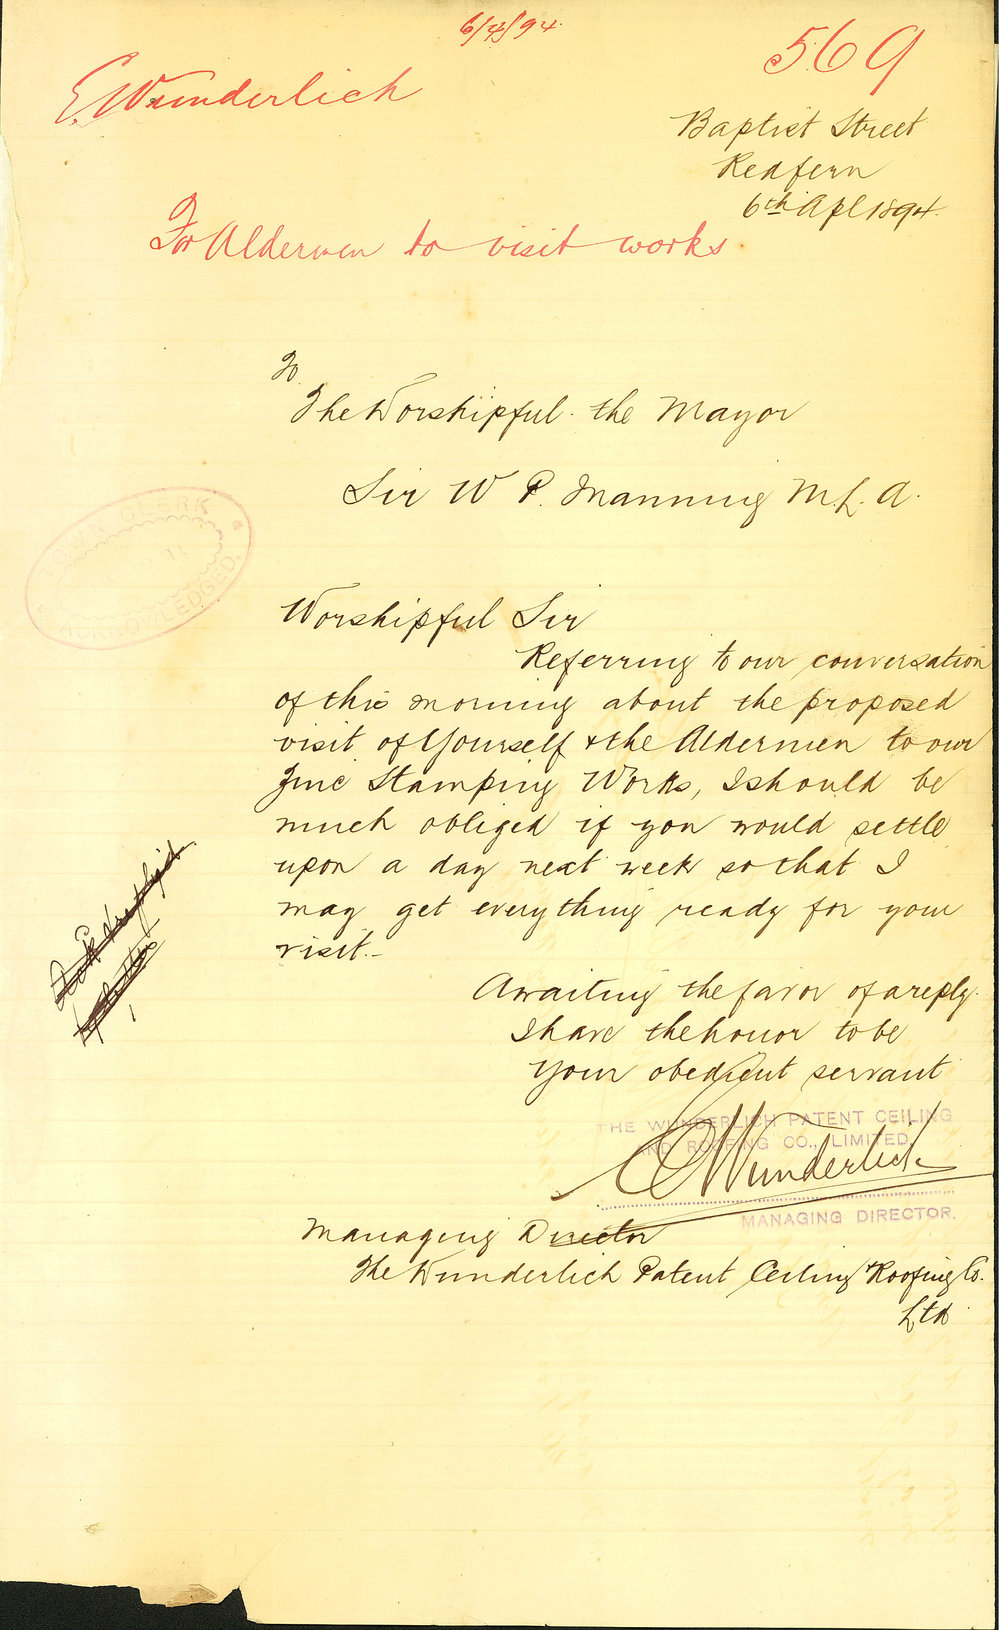 6/4/94
569
E. Wunderlich
Baptist Street
Redfern
6th Apl 1894.
For Aldermen to visit works
To
The Worshipful the Mayor
Sir W P. Manning M.L.A.
TOWN CLERK
ACKNOWLEDGED.
Worshipful Sir
Referring to our conversation
of this morning about the proposed
visit of Yourself & the Aldermen to our
Zinc Stamping Works, I should be
much obliged if you would settle
upon a day next week so that I
may get everything ready for your
visit.-
Awaiting the favor of a reply.
I have the honor to be
Your obedient servant
THE WUNDERLICH PATENT CEILING
AND ROOFING CO., LIMITED
E Wunderlich
MANAGING DIRECTOR.
Managing Director
The Wunderlich Patent Ceiling & Roofing Co.
Ltd